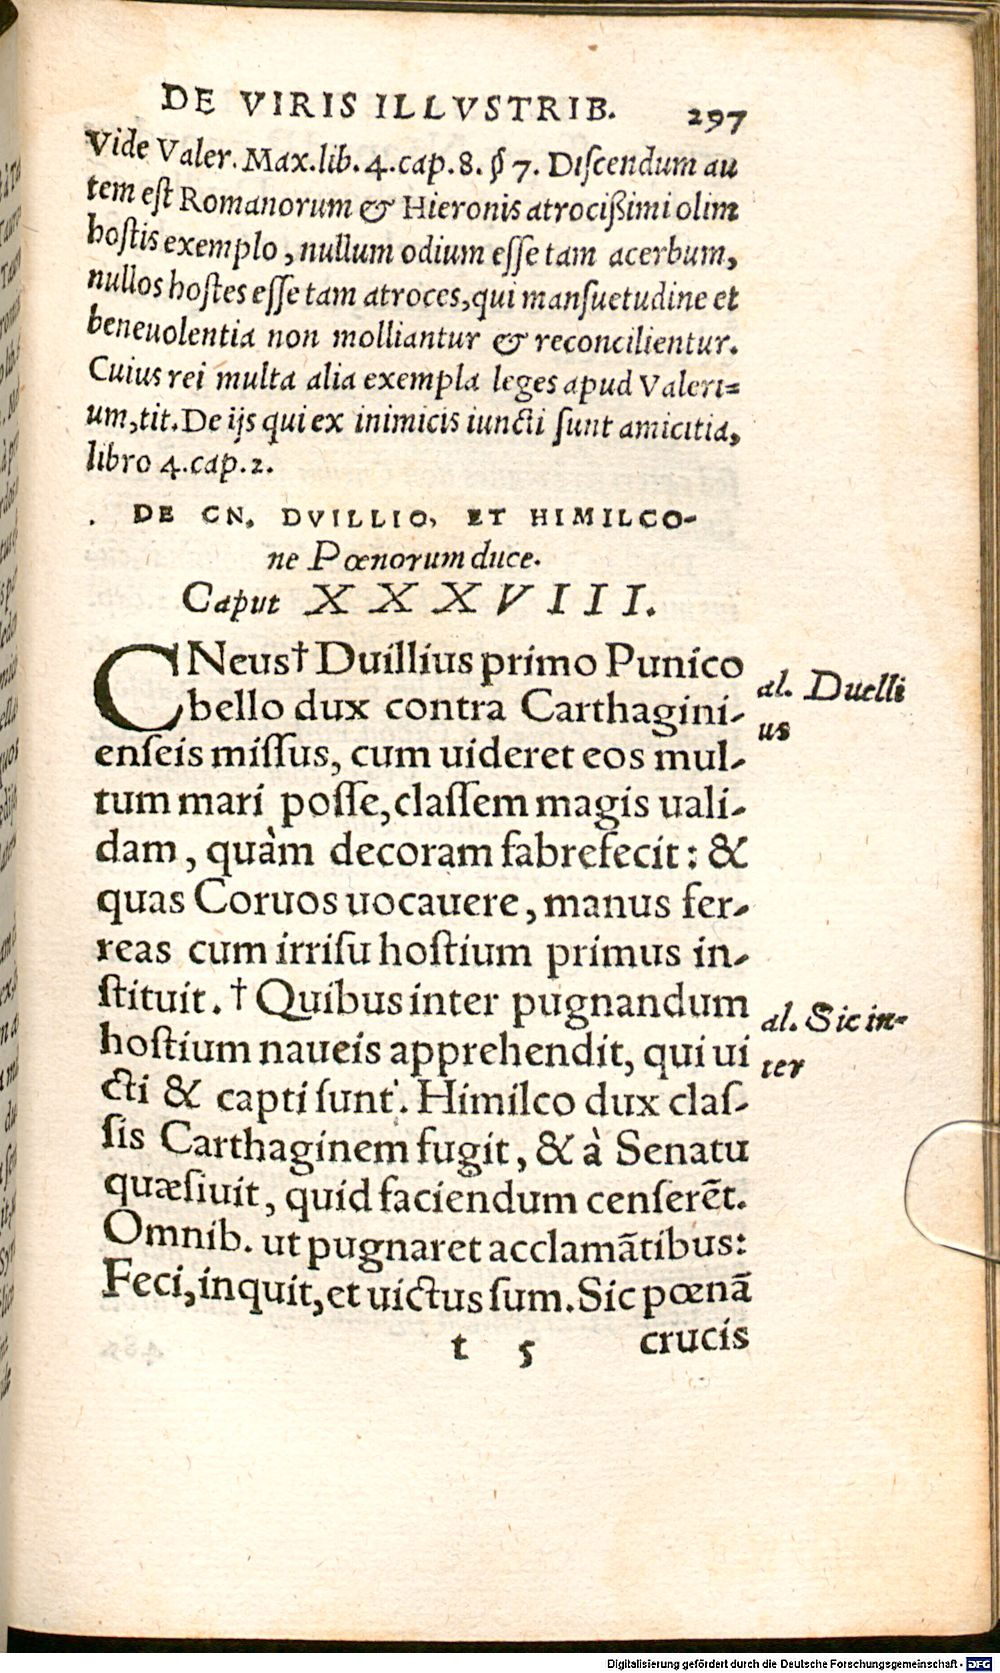 DE VIRIS ILLVSTRIB. 297
Vide Valer. Max. lib. 4. cap. 8. § 7. Discendum au
tem est Romanorum & Hieronis atrocißimi olim
hostis exemplo, nullum odium esse tam acerbum,
nullos hostes esse tam atroces, qui mansuetudine et
beneuolentia non molliantur & reconcilientur.
Cuius rei multa alia exempla leges apud Valeri=
um, tit. De ijs qui ex inimicis iuncti sunt amicitia,
libro 4. cap. 2.
DE CN. DVILLIO, ET HIMILCO-
ne Pœnorum duce.
Caput XXXVIII.
CNeus† Duillius primo Punico
al. Duelli
bello dux contra Carthagini-
us
enseis missus, cum uideret eos mul-
tum mari posse, classem magis uali-
dam, quàm decoram fabrefecit: &
quas Coruos uocauere, manus fer-
reas cum irrisu hostium primus in-
stituit. † Quibus inter pugnandum
al. Sic in-
hostium naueis apprehendit, qui ui
ter
cti & capti sunt. Himilco dux clas-
sis Carthaginem fugit, & à Senatu
quæsiuit, quid faciendum censerēt.
Omnib. ut pugnaret acclamātibus:
Feci, inquit, et uictus sum. Sic pœnā
t 5 crucis
Digitalisierung gefördert durch die Deutsche Forschungsgemeinschaft - DFG